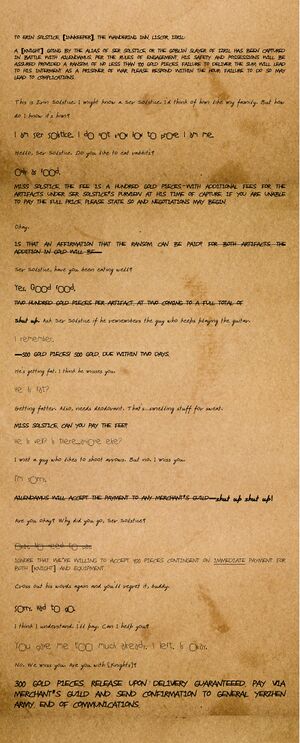 TO ERIN SOLSTICE, [INNKEEPER], THE WANDERING INN, LISCOR, IZRIL:
A [KNIGHT] GOING BY THE ALIAS OF SER SOLSTICE OR THE GOBLIN SLAYER OF IZRIL HAS BEEN CAPTURED
IN BATTLE WITH AILENDAMUS. PER THE RULES OF ENGAGEMENT, HIS SAFETY AND POSSESSIONS WILL BE
ASSURED PROVIDED A RANSOM OF NO LESS THAN 100 GOLD PIECES. FAILURE TO DELIVER THE SUM WILL LEAD
TO HIS INTERMENT AS A PRISONER OF WAR. PLEASE RESPOND WITHIN THE HOUR. FAILURE TO DO SO MAY
LEAD TO COMPLICATIONS.
This is Erin Solstice. I might know a Ser Solstice. I'd think of him like my family. But how
do I know it's him?
I am ser solstice. I do not know how to prove I am me.
Hello, Ser Solstice. Do you like to eat rabbits?
Only as food.
MISS SOLSTICE, THE FEE IS A HUNDRED GOLD PIECES—WITH ADDITIONAL FEES FOR THE
ARTIFACTS UNDER SER SOLSTICE'S PURVIEW AT HIS TIME OF CAPTURE. IF YOU ARE UNABLE
TO PAY THE FULL PRICE, PLEASE STATE SO AND NEGOTIATIONS MAY BEGIN.
Okay.
IS THAT AN AFFIRMATION THAT THE RANSOM CAN BE PAID? FOR BOTH ARTIFACTS, THE
ADDITION IN GOLD WILL BE—
Ser Solstice, have you been eating well?
Yes. Good food.
TWO HUNDRED GOLD PIECES PER ARTIFACT, AT TWO COMING TO A FULL TOTAL OF
Shut up. Ask Ser Solstice if he remembers the guy who keeps playing the guitar.
I remember.
—500 GOLD PIECES! 500 GOLD, DUE WITHIN TWO DAYS.
He's getting fat. I think he misses you.
He is fat?
Getting fatter. Also, needs deodorant. That's...smelling stuff for sweat.
MISS SOLSTICE, CAN YOU PAY THE FEE?
He is well? Is there...anyone else?
I met a guy who likes to shoot arrows. But no. I miss you.
I'm sorry.
AILENDAMUS WILL ACCEPT THE PAYMENT TO ANY MERCHANT'S GUILD—shut up shut up!
Are you okay? Why did you go, Ser Solstice?
IGNORE THAT. WE'RE WILLING TO ACCEPT 400 PIECES CONTINGENT ON IMMEDIATE PAYMENT FOR
BOTH [KNIGHT] AND EQUIPMENT.
Cross out his words again and you'll regret it, buddy.
Sorry. Had to go.
I think I understand. I'll pay. Can I help you?
You gave me too much already. I left. Is okay.
No. We miss you. Are you with [Knights]?
300 GOLD PIECES. RELEASE UPON DELIVERY GUARANTEED. PAY VIA
MERCHANT'S GUILD AND SEND CONFIRMATION TO GENERAL YERZHEN
ARMY. END OF COMMUNICATIONS.